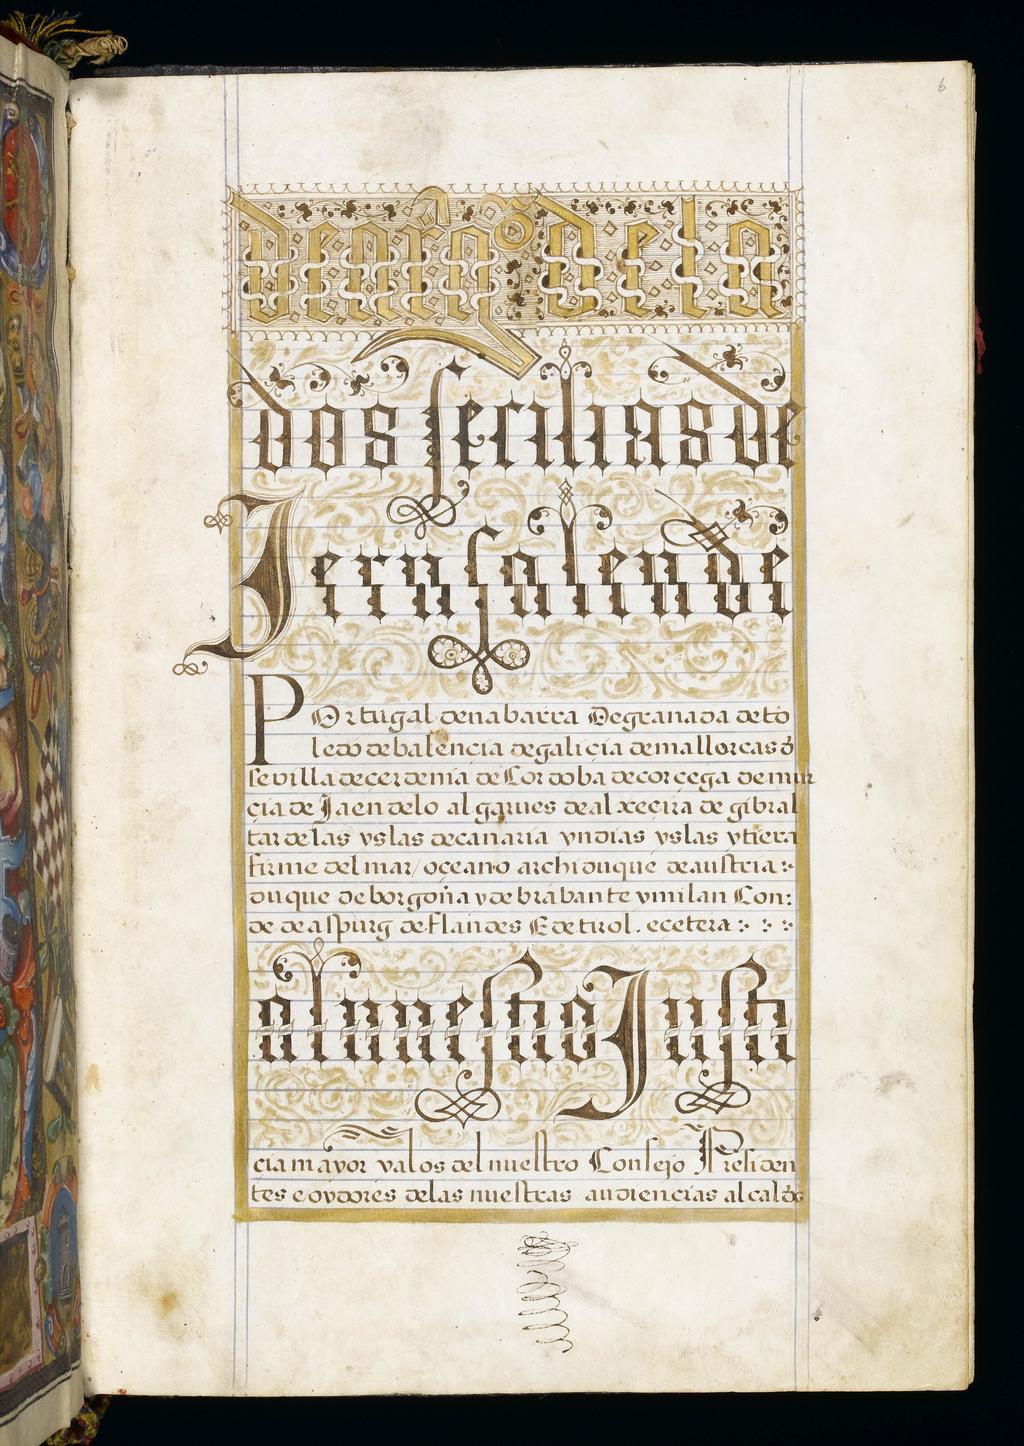 6
de arağō de la
dos seciliasde
Jerusalen de
POrtugal denabarra Degranada de to
ledo de balencia degalicia demallorcas đ
sevilla decerdenia de Cordoba decorcega demur
cia de Jaen delo algarues deal xecira de gibral
tar de las yslas decanaria yndias yslas ytierra
firme del mar/oceano archiduque deaustria
duque de borgoña y de brabante ymilan Con:
de deaspurg deflandes E detirol. ecetera
alnuestro Justi
cia mayor yalos del nuestro Consejo Presiden
tes e oydores delas nuestras audiencias alcaldes